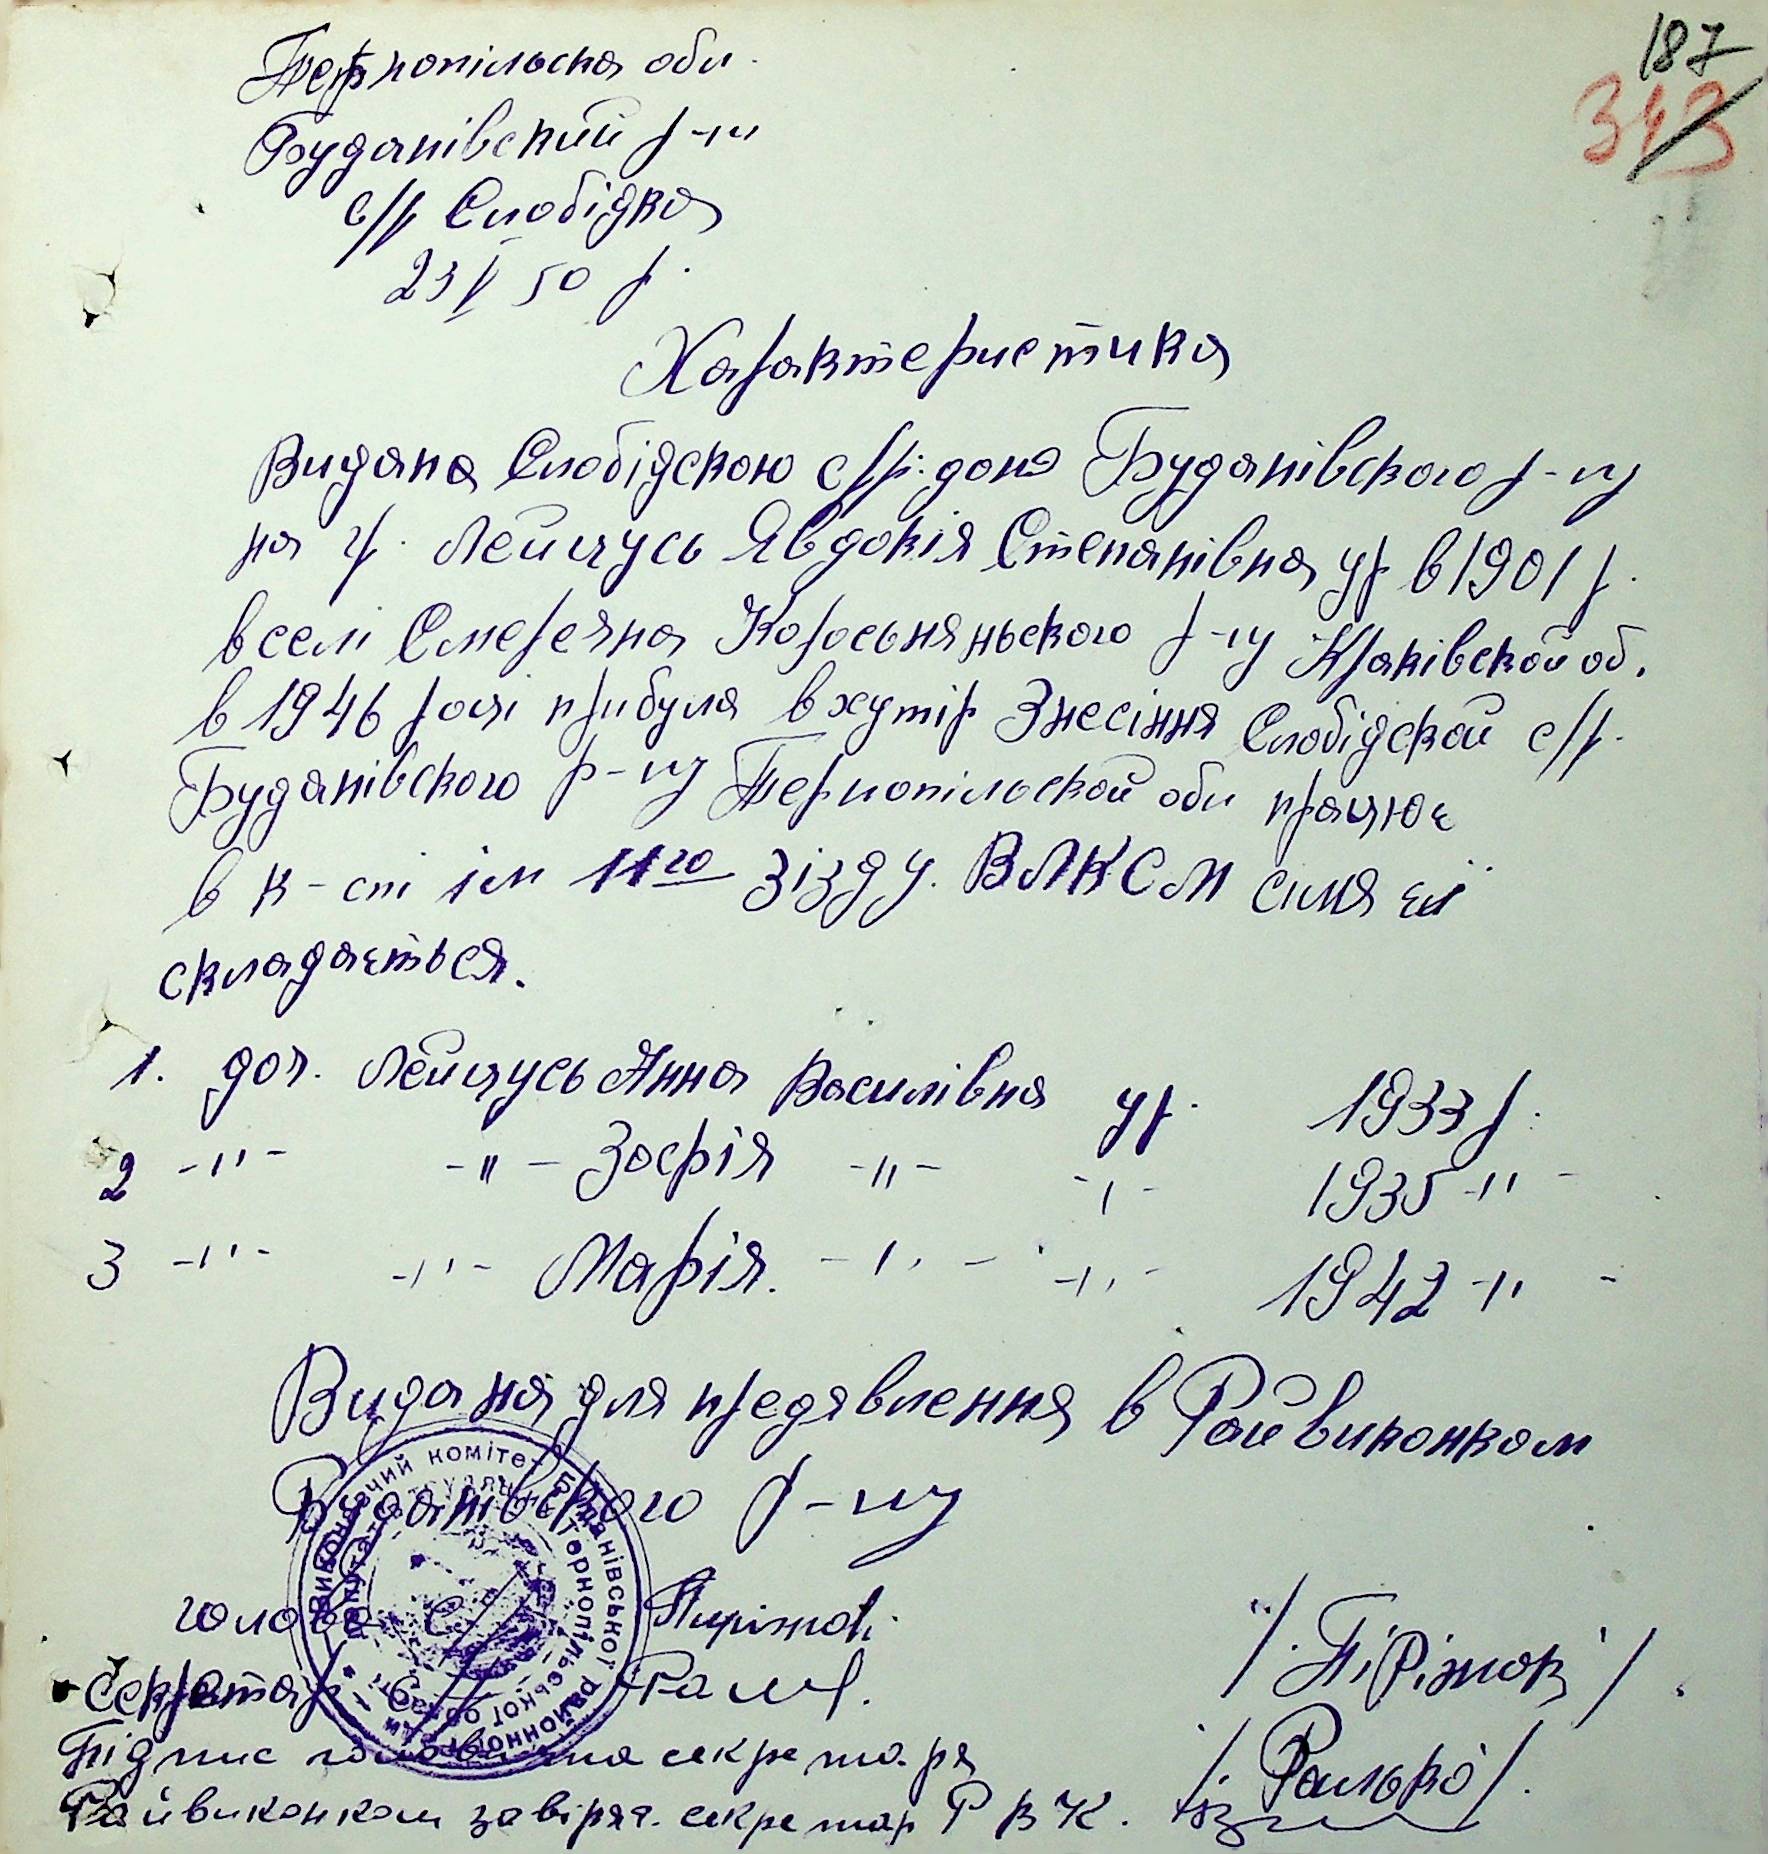 187
343
Тернопільска обл.
Буданівский р-н
с/р Слобідка
23 V 50 р.
Характеристика
Видана Слобідскою с/р. дона Буданівского р-ну
на гр. Лейцусь Явдокія Степанівна ур в 1901 р.
в селі Смереяна Коросьняньского р-ну Краківской об.
в 1946 році прибула в хутір Знесіння Слобідской с/р.
Буданівского р-ну Тернопільской обл працює
в к-сті ім 11го зізду. ВЛКСМ сімя єї
складається.
1. доч. Лейцусь Анна Василівна ур. 1933 р.
2 -"- -"- Зофія -"- -"- 1935 -"-
3 -"- -"- Марія. -"- -"- 1942 -"-
Видана для предявлення в Райвиконком
Буданівского р-ну
голова с/р /Піріжок/
Секретар с/р /Ралько/.
Підпис голови та секретаря
Райвиконком завіряє. секретар РВК.
Виконавчий комітет Буданівської районної Ради депутатів трудящих Тернопільської області